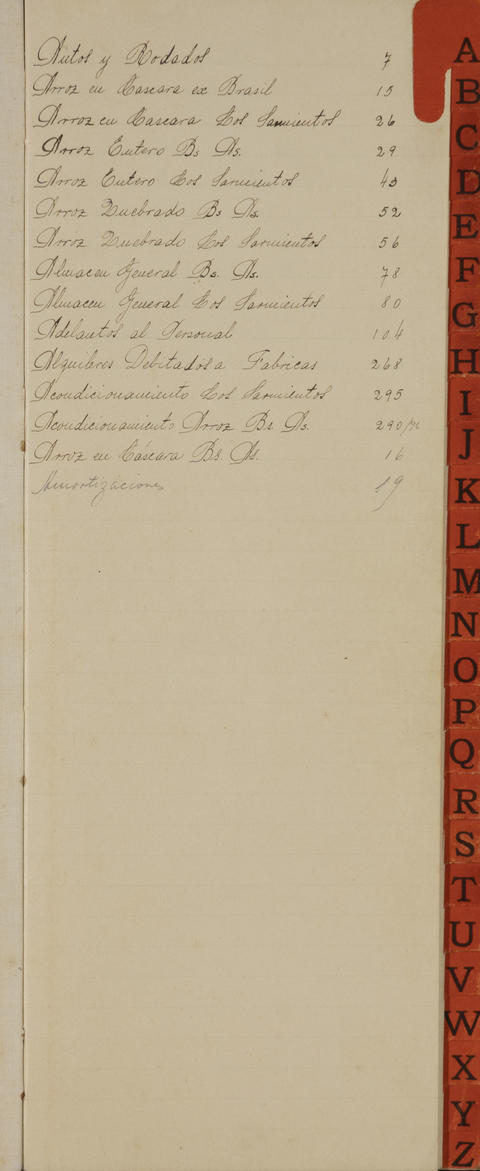 Autos y Rodados 7
Arroz en Cascara ex Brasil 15
Arroz en Cascara Los Sarmientos 26
Arroz Entero Bs As. 29
Arroz Entero Los Sarmientos 43
Arroz Quebrado Bs As. 52
Arroz Quebrado Los Sarmientos 56
Almacen General Bs. As. 78
Almacen General Los Sarmientos 80
Adelantos al Personal 104
Alquileres Debitados a Fabricas 268
Acondicionamiento Los Sarmientos 295
Acondicionamiento Arroz Bs. As. 290
Arroz en Cáscara Bs. As. 16
Amortizaciones 19
A
B
C
D
E
F
G
H
I
J
K
L
M
N
O
P
Q
R
S
T
U
V
W
X
Y
Z